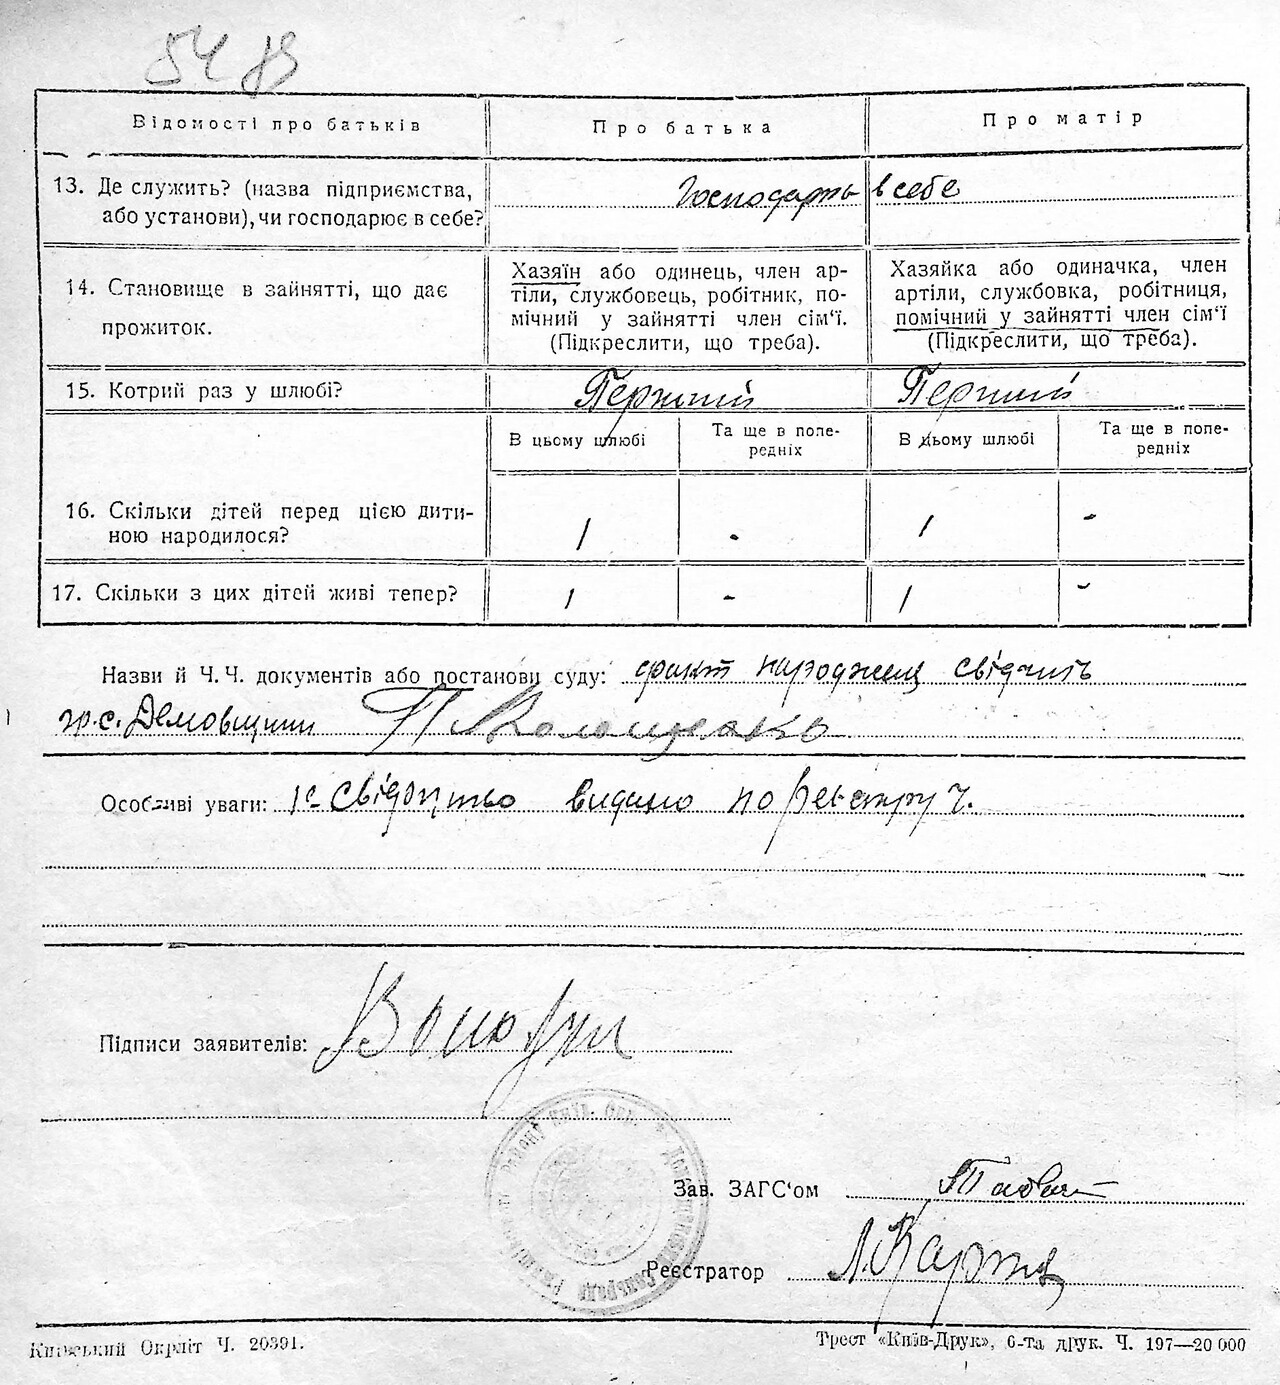 54
Відомості про батьків
Про батька
Про матір
13. Де служить? (назва підприємства,
або установи), чи господарює в себе?
Господарть в себе
14. Становище в зайнятті, що дає
прожиток.
Хазяїн або одинець, член ар-
тіли, службовець, робітник, по-
мічний у зайнятті член сім‘ї.
(Підкреслити, що треба).
Хазяйка або одиначка, член
артіли, службовка, робітниця,
помічний у зайнятті член сім‘ї
(Підкреслити, що треба).
15. Котрий раз у шлюбі?
Перший
Перший
В цьому шлюбі
Та ще в попе-
редніх
В цьому шлюбі
Та ще в попе-
редніх
16. Скільки дітей перед цією дити-
ною народилося?
1
-
1
-
17. Скільки з цих дітей живі тепер?
1
-
1
-
Назви й Ч.Ч. документів або постанови суду: факт народження свідчить
гр. с. Демовщини П Волощенко
Особливі уваги: Свідоцтво видано по реєстру ч.
Підписи заявителів:
Зав. ЗАГС‘ом
Реєстратор
району Київ. Окр.
Київський Окрліт Ч. 20391.
Трест «Київ-Друк», 6-та друк. Ч. 197—20 000